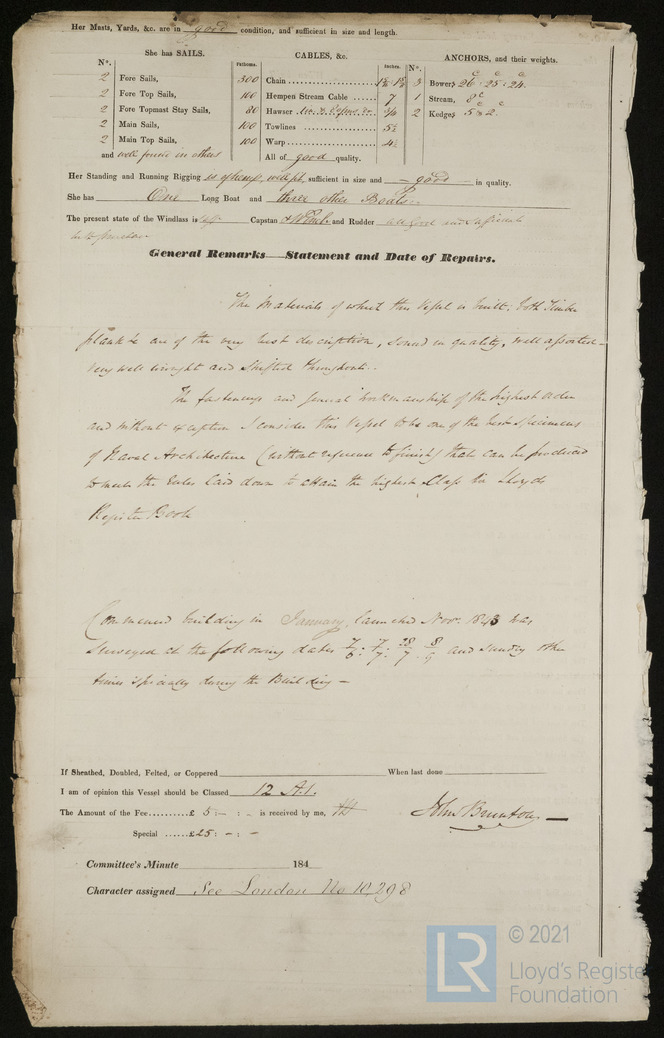 Her Masts, Yards, &c. are in good condition, and sufficient in size and length.
She has SAILS.
CABLES, &c.
ANCHORS, and their weights.
No.
Fathoms.
Inches.
No.
2 Fore Sails, 300 Chain 3 Bowers 26 · 25 · 24
2 Fore Top Sails, 100 Hempen Stream Cable 7 1 Stream, 8
2 Fore Topmast Stay Sails, 80 Hawser 2 Kedges 5 2
2 Main Sails, 100 Towlines 5½
2 Main Top Sails, 100 Warp 4½
and well found in others All of good quality.
Her Standing and Running Rigging is of hemp, sufficient in size and good in quality.
She has One Long Boat and three other Boats
The present state of the Windlass is Capstan & Winch and Rudder all good and
General Remarks—Statement and Date of Repairs.
The Materials of which this Vessel is built, both Timber
plank &c are of the very best description, sound in quality, well assorted
very well wrought and shifted throughout.
The fastenings and general workmanship of the highest order
and without exception I consider this Vessel to be one of the best specimens
of Naval Architecture (without reference to finish) that can be produced
to meet the Rules laid down to attain the highest Class in Lloyds
Register Book
Commenced building in January, launched Novr. 1843 was
surveyed at the following dates 7/7 28/7 and sundry other
times specially during the Building —
If Sheathed, Doubled, Felted, or Coppered When last done
I am of opinion this Vessel should be Classed 12 A.1.
The Amount of the Fee £ 5 : - : - is received by me,
John Brunton
Special £25 : - : -
Committee's Minute 184
Character assigned See London No 10,298
LR
© 2021
Lloyd's Registe
Foundation